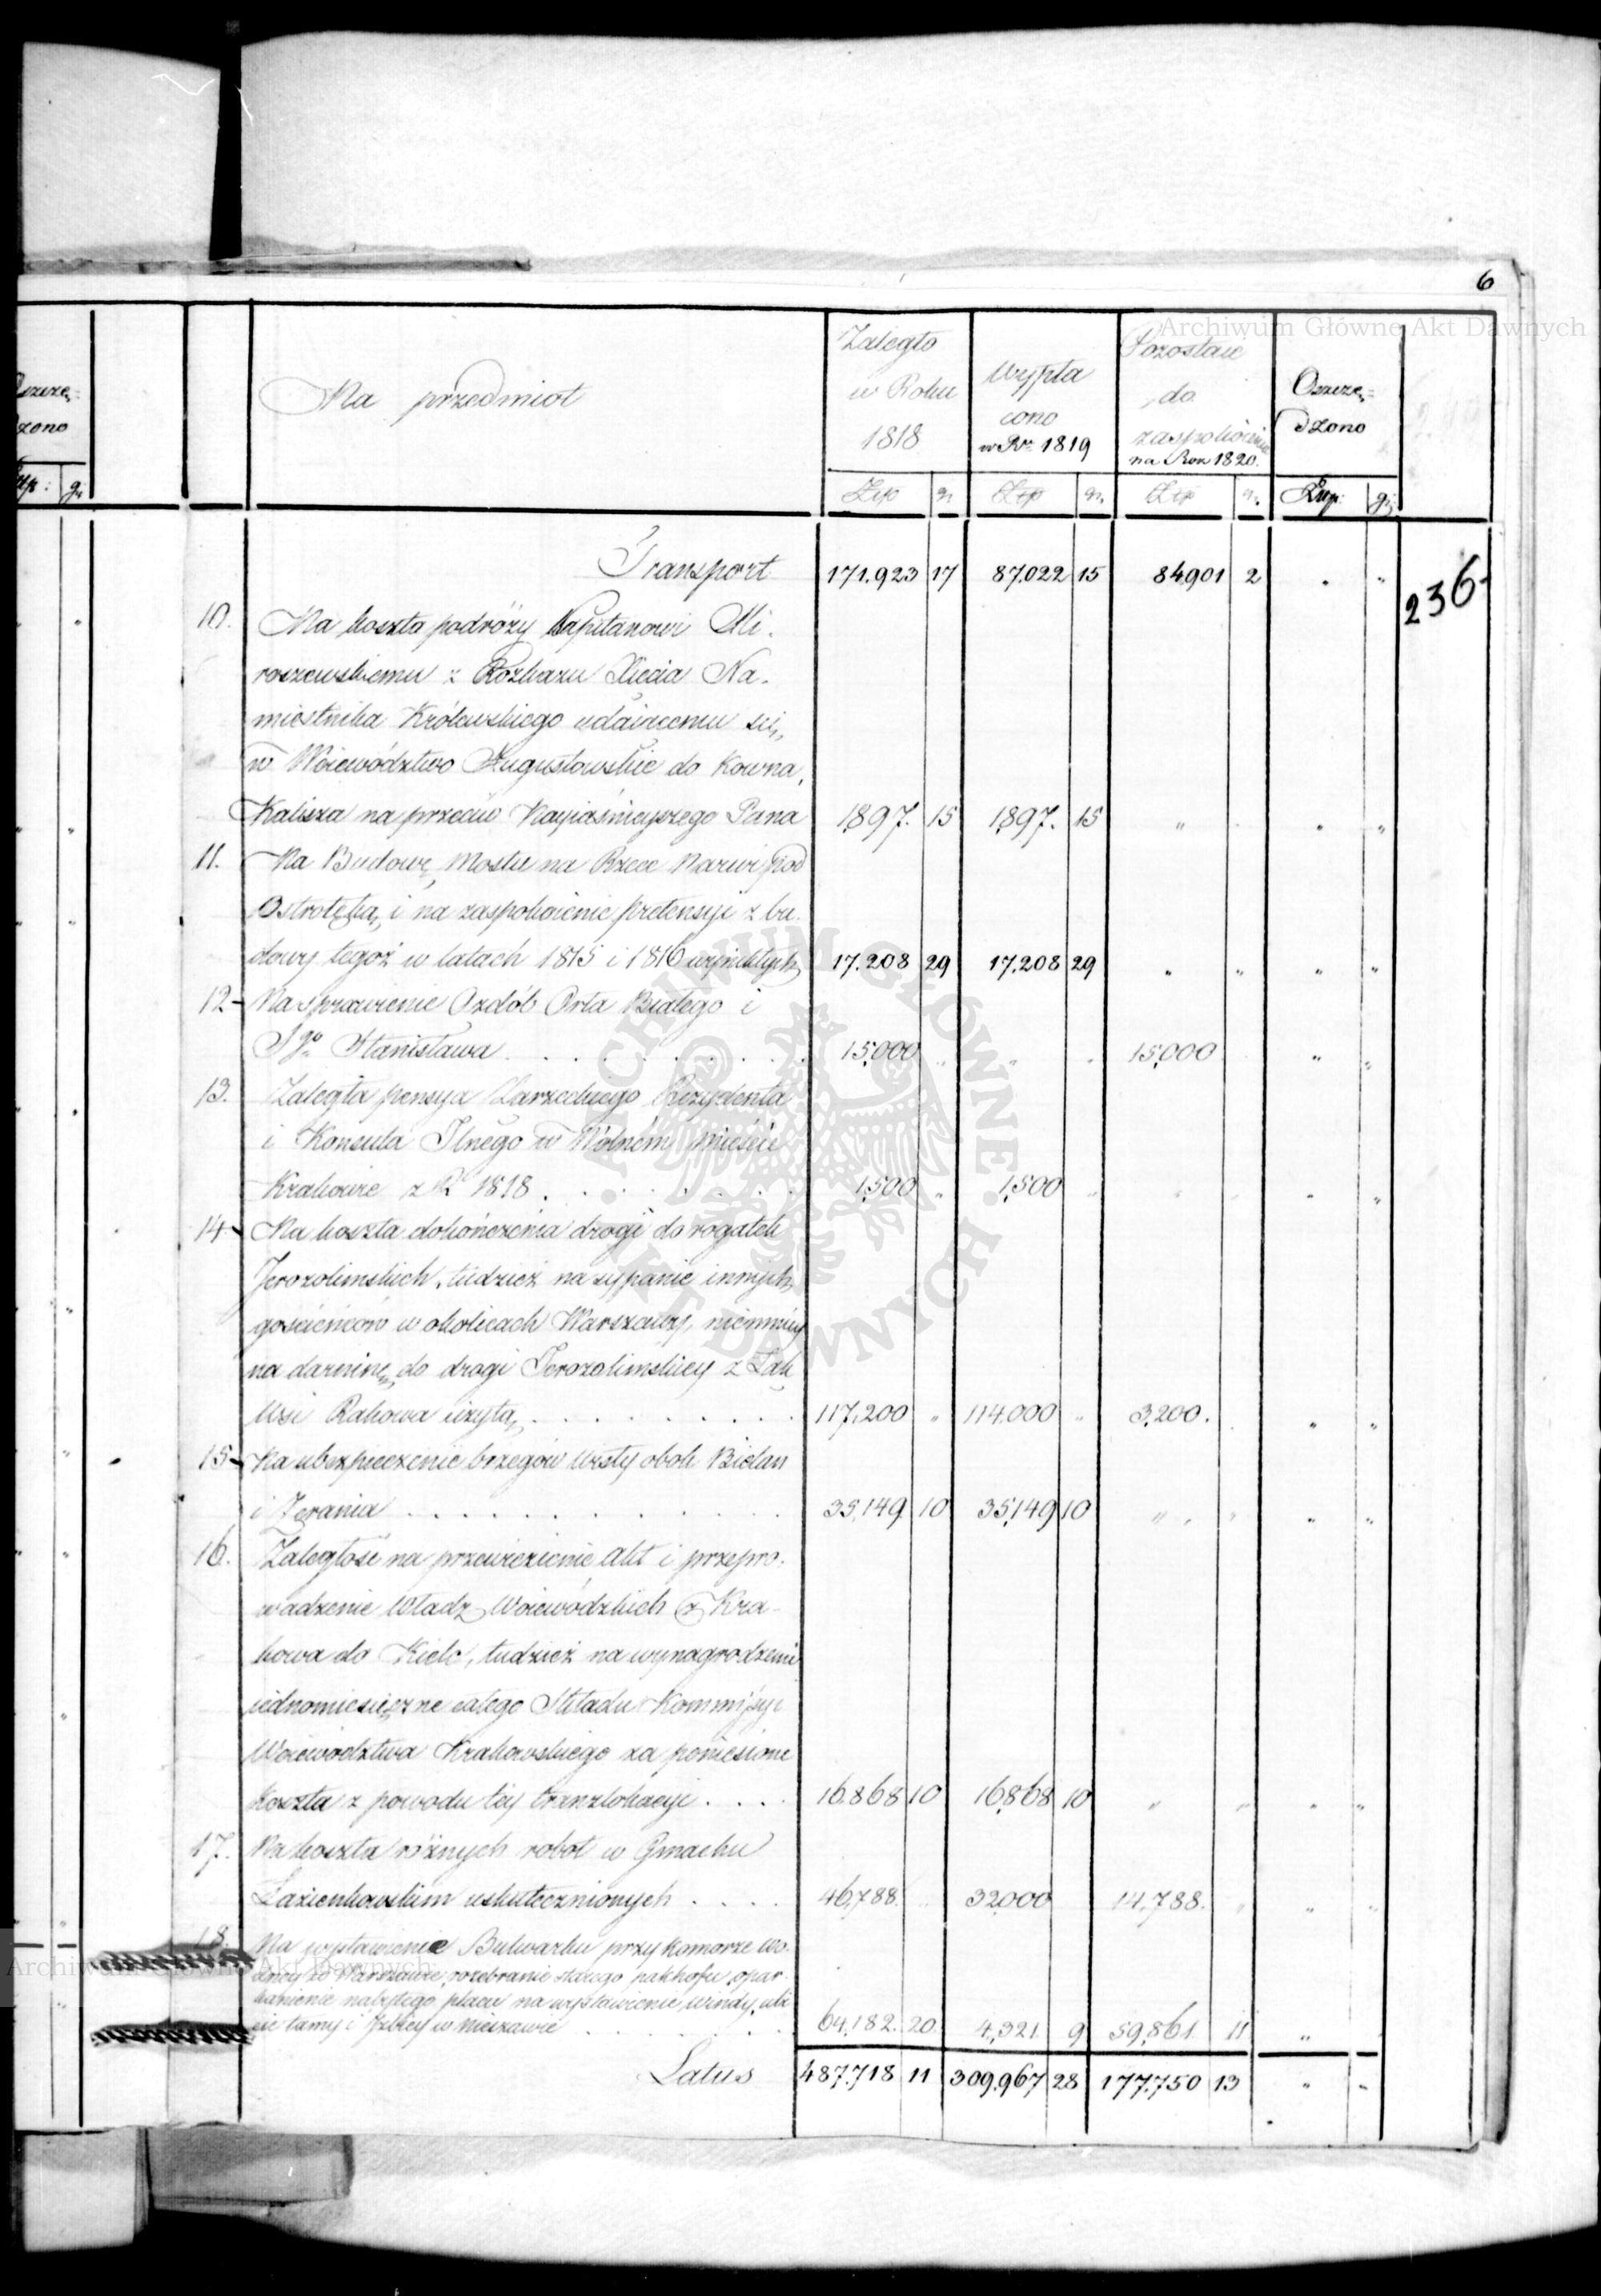 6
Oszczę=
dzono
Złp: gr
Na przedmiot
Zaległo
w Roku
1818
Złp gr
Wypła
cono
w Rku 1819
Złp gr.
Pozostaie
do
zaspokoienia
na Rok 1820.
Złp gr.
Oszczę=
dzono
Złp: gr
236
Transport 171.923 17 87.022 15 84.901 2 " "
10. Na koszta podróży Kapitanowi Mi.
roszewskiemu z Rozkazu Xięcia Na.
miestnika Królewskiego udaiącemu się,
w Woiewództwo Augustowskie do Kowna,
Kalisza na przeciw Nayiaśnieyszego Pana 1,897. 15 1,897. 15 " " " "
11. Na Budowę Mostu na Rzece Narwi pod
Ostrołęką, i na zaspokoienie pretensyi z bu.
dowy tegoż w latach 1815 i 1816 wynikłych 17.208 29 17.208 29 " " " "
12 Na sprawienie Ozdób Orła Białego i
Sgo Stanisława . . . . . . . . . 15,000 " " " 15,000 " "
13. Zaległa pensya Zarzeckiego Rezydenta
i Konsula Jlnego w Wolném Mieście
Krakowie z R. 1818 . . . . . . . 1,500 " 1,500 " " " " "
14 Na koszta dokończenia drogi do rogatek
Jerozolimskich, tudzież na sypanie innych
gościńców w okolicach Warszawy, niemniey
na darninę, do drogi Jerozolimskiey z Łąk
Wsi Rakowa użytą, . . . . . . . . . 117,200 " 114.000 " 3,200. " "
15 Na ubezpieczenie brzegów Wisły obok Bielan
i Żerania . . . . . . . . . . . . 35,149 10 35,149 10 " " " "
16. Zaległość na przewiezienie Akt i przepro.
wadzenie Władz Woiewódzkich z Kra
kowa do Kielc, tudzież na wynagrodzenie
iednomiesięczne całego Składu Kommissyi
Woiewództwa Krakowskiego za poniesione
koszta z powodu tey tranzlokacyi . . . . 16.868 10 16,868 10 " " " "
17. Na koszta różnych robot w Gmachu
Łazienkowskim uskutecznionych . . . . 46,788. " 32,000 14,788. " " "
18. Na wystawienie Bulwarku przy Komorze Wo
dney w Warszawie, rozebranie starego pakhofu, opar
kanienie nabytego placu na wystawienie windy,
tamy i Izbicy w Nieszawie . . . . . . 64,182. 20 4,321 9 59,861 11 "
Latus 487.718 11 309.967 28 177.750 13 " "
Archiwum Główne Akt Dawnych
ARCHIWUM GŁÓWNE AKT DAWNYCH
Archiwum Główne Akt Dawnych